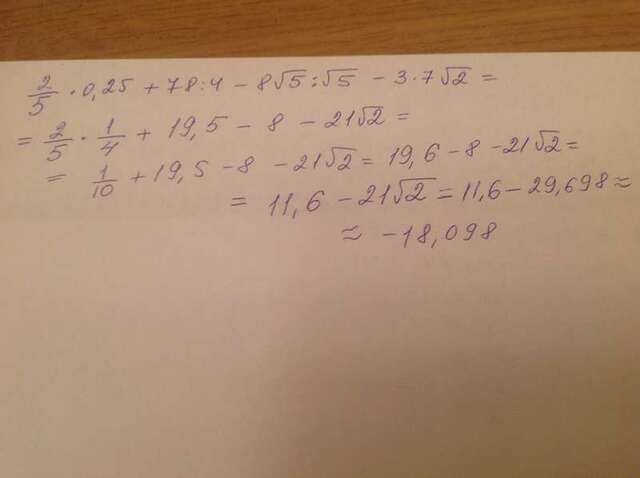 2/5 · 0,25 + 78:4 − 8√5:√5 − 3·7√2 =
= 2/5 · 1/4 + 19,5 − 8 − 21√2 =
= 1/10 + 19,5 − 8 − 21√2 = 19,6 − 8 − 21√2 =
= 11,6 − 21√2 = 11,6 − 29,698 ≈
≈ −18,098